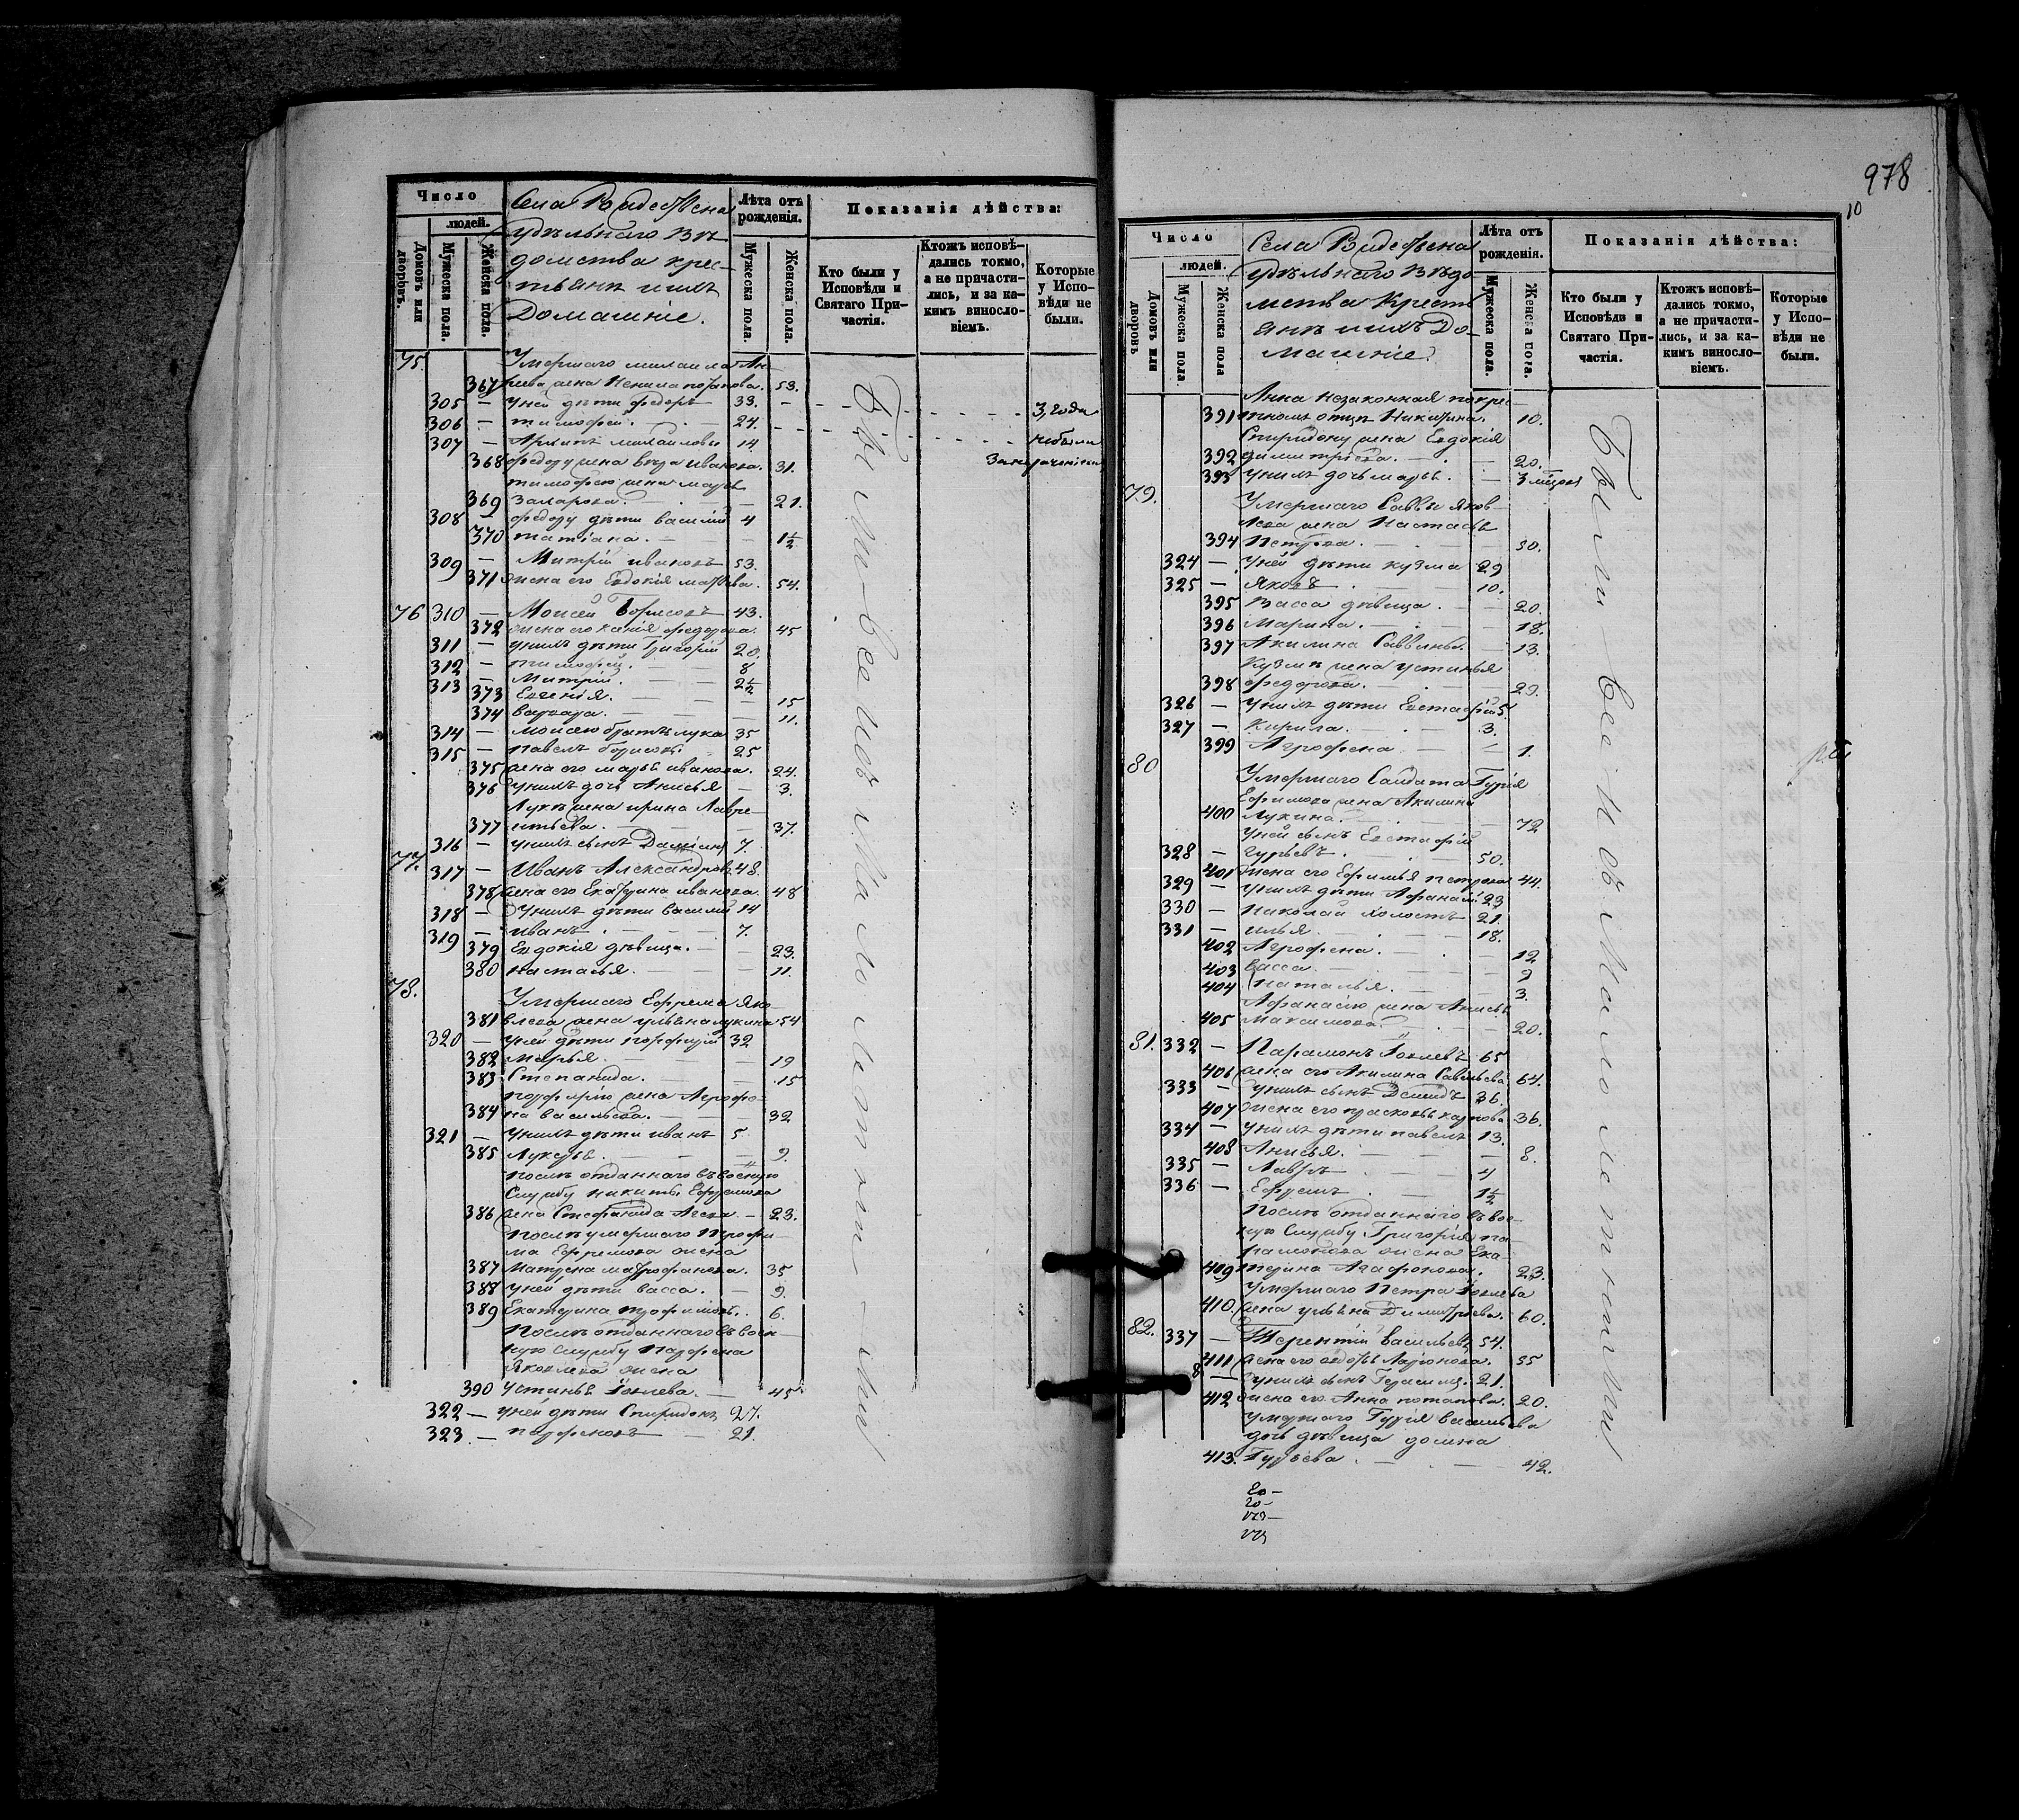 978
10
Число
людей.
Домовъ или дворовъ.
Мужеска пола.
Женска пола.
Села
удѣльнаго Вѣ-
домства крес-
тьянъ и ихъ
Домашніе.
Лѣта отъ рожденія.
Мужеска пола.
Женска пола.
Показанія дѣйства:
Кто были у Исповѣди и Святаго При-частія.
Ктожъ исповѣ-дались токмо, а не причасти-лись, и за ка-кимъ виносло-віемъ.
Которые у Испо-вѣди не были.
75. Умершаго Михаила
367 жена потапова. 53.
305 — У ней дѣти Федоръ 33. — 3 года
306 — тимофей. 24.
307 — михаиловы 14. небыли
368 Федору жена вѣра иванова. 31.
тимофею жена марья
369 захарова. — 21.
308 — Федору дѣти василій 4
370 татіана. — 1½
309 — Митрій ивановъ 53.
371 жена его Евдокія 54.
76 310 — Моисей Борисовъ 43.
372 жена его ксенія федорова. 45
311 — у нихъ дѣти Григорій 20.
312 — тимофей. 8
313 — Митрій. 2½
373 Евгенія. — 15
374 варвара. — 11.
314 — моисею братъ лука 35
315 — павелъ борисовъ 25
375 жена его марья иванова. 24.
376 у нихъ дочь Анисья — 3.
Лукѣ жена ирина Лавре-
377 нтьева. — 37.
316 — у нихъ сынъ Даміанъ 7.
77. 317 — Иванъ Александровъ 48.
378 жена его Екатерина иванова. 48
318 — У нихъ дѣти василій 14
319 — иванъ. 7.
379 Евдокія дѣвица. — 23.
380 настасья. — 11.
78. Умершаго Ефрема Яко-
381 влева жена ульяна лукина 54
320 — У ней дѣти порфирій 32
382 марья. — 19
383 Степанида. — 15
порфирію жена Агрофе-
384 на васильева. — 32
321 — У нихъ дѣти иванъ 5
385 Лукерья. — 9.
послѣ отданнаго въ военную
Службу никиты Ефремова
386 жена Стефанида — 23.
послѣ умершаго трофи-
ма Ефремова жена
387 Матрена митрофанова. 35
388 У ней дѣти васса. — 9.
389 Екатерина трофимовы. 6.
Послѣ отданнаго въ воен-
ную Службу Парфена
Яковлева жена
390 Устинья — 45
322 — У ней дѣти Спиридонъ 27.
323. — 21.
Были всѣ Малолѣтними
Число
людей.
Домовъ или дворовъ
Мужеска пола
Женска пола
Села
удѣльнаго Вѣдо-
мства Кресть
янъ и ихъ До-
машніе.
Лѣта отъ рожденія.
Мужеска пола.
Женска пола.
Показанія дѣйства:
Кто были у Исповѣди и Святаго При-частія.
Ктожъ исповѣ-дались токмо, а не причасти-лись, и за ка-кимъ виносло-віемъ.
Которые у Испо-вѣди не были.
Анна незаконная по крес-
391 тномъ отцѣ 10.
Спиридону жена Евдокія
392 димитріева. — 20.
393 У нихъ дочь марья. — 3 мѣсяца
79. Умершаго Саввы Яков-
лева жена Настасья
394 Петрова. — 50.
324 — У ней дѣти кузма 29
325 — Яковъ 10.
395 Васса дѣвица. — 20.
396 Марина. — 18.
397 Акилина Саввины. — 13.
Кузмѣ жена устинья
398 федорова. — 29.
326 — У нихъ дѣти Евстафій 5.
327 — Кирила. 3.
399 Агрофена — 1.
80 Умершаго Солдата Гурія
Ефимова жена Акилина
400 Лукина. — 72
У ней сынъ Евстафій
328 — гурьевъ. 50.
401 жена его Ефимья петрова 44.
329 — У нихъ дѣти Афанасій 23
330 — николай холостъ 21.
331 — илья. 18.
402 Агрофена. — 12
403 васса. — 9
404 наталья. — 3.
Афанасію жена Анисья
405 Максимова. — 20.
81. 332 — Парамонъ 65
406 жена его Акилина Савельева 64.
333 — У нихъ сынъ Демидъ 36.
407 жена его прасковья карпова 36.
334 — У нихъ дѣти павелъ 13.
408 Анисья. — 8.
335 — Лавръ 4
336 — Ефремъ 1½
Послѣ отданнаго въ вое-
ную Службу Григорія па-
рамонова жена Ека-
409 терина Агафонова. 23.
Умершаго Петра
410. жена ульяна Димитріева. 60.
82. 337 — Терентій васильевъ 54.
411 жена его Ларіонова. 55
8 — У нихъ сынъ Герасимъ. 21.
412 жена его Анна потапова. 20.
Умершаго Гурія васильева
дочь дѣвица домна
413. Гурьева. — 42.
Были всѣ Малолѣтними